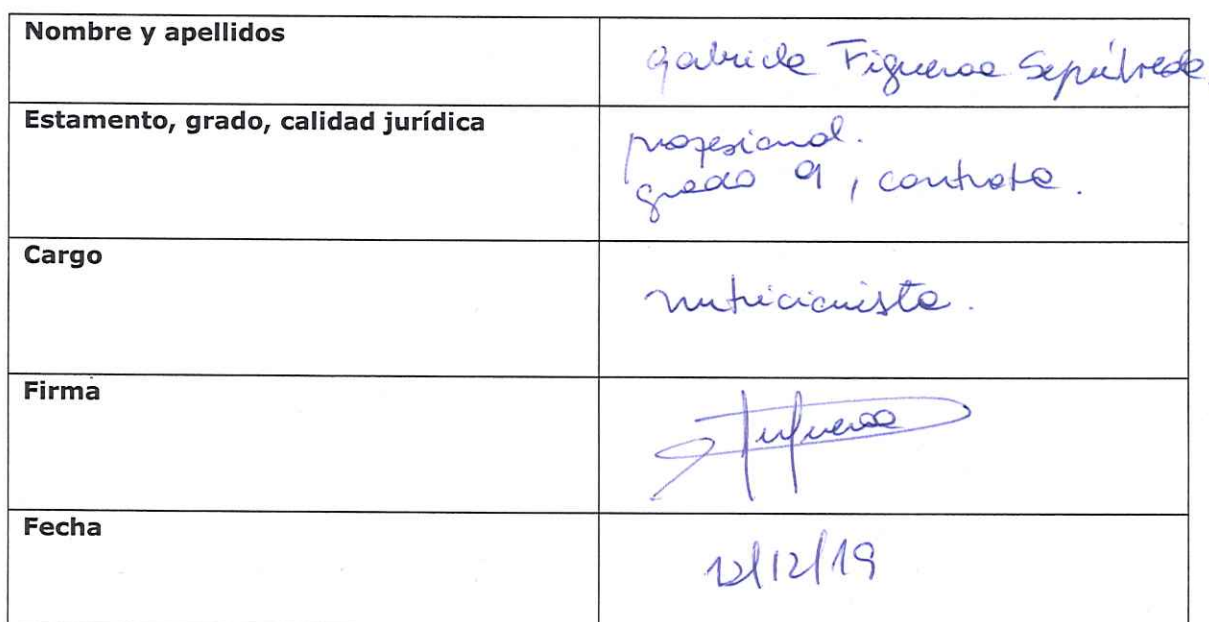 Nombre y apellidos
Gabriela Figueroa Sepúlveda
Estamento, grado, calidad jurídica
profesional.
grado 9, contrata.
Cargo
nutricionista.
Firma
Figueroa
Fecha
12/12/19